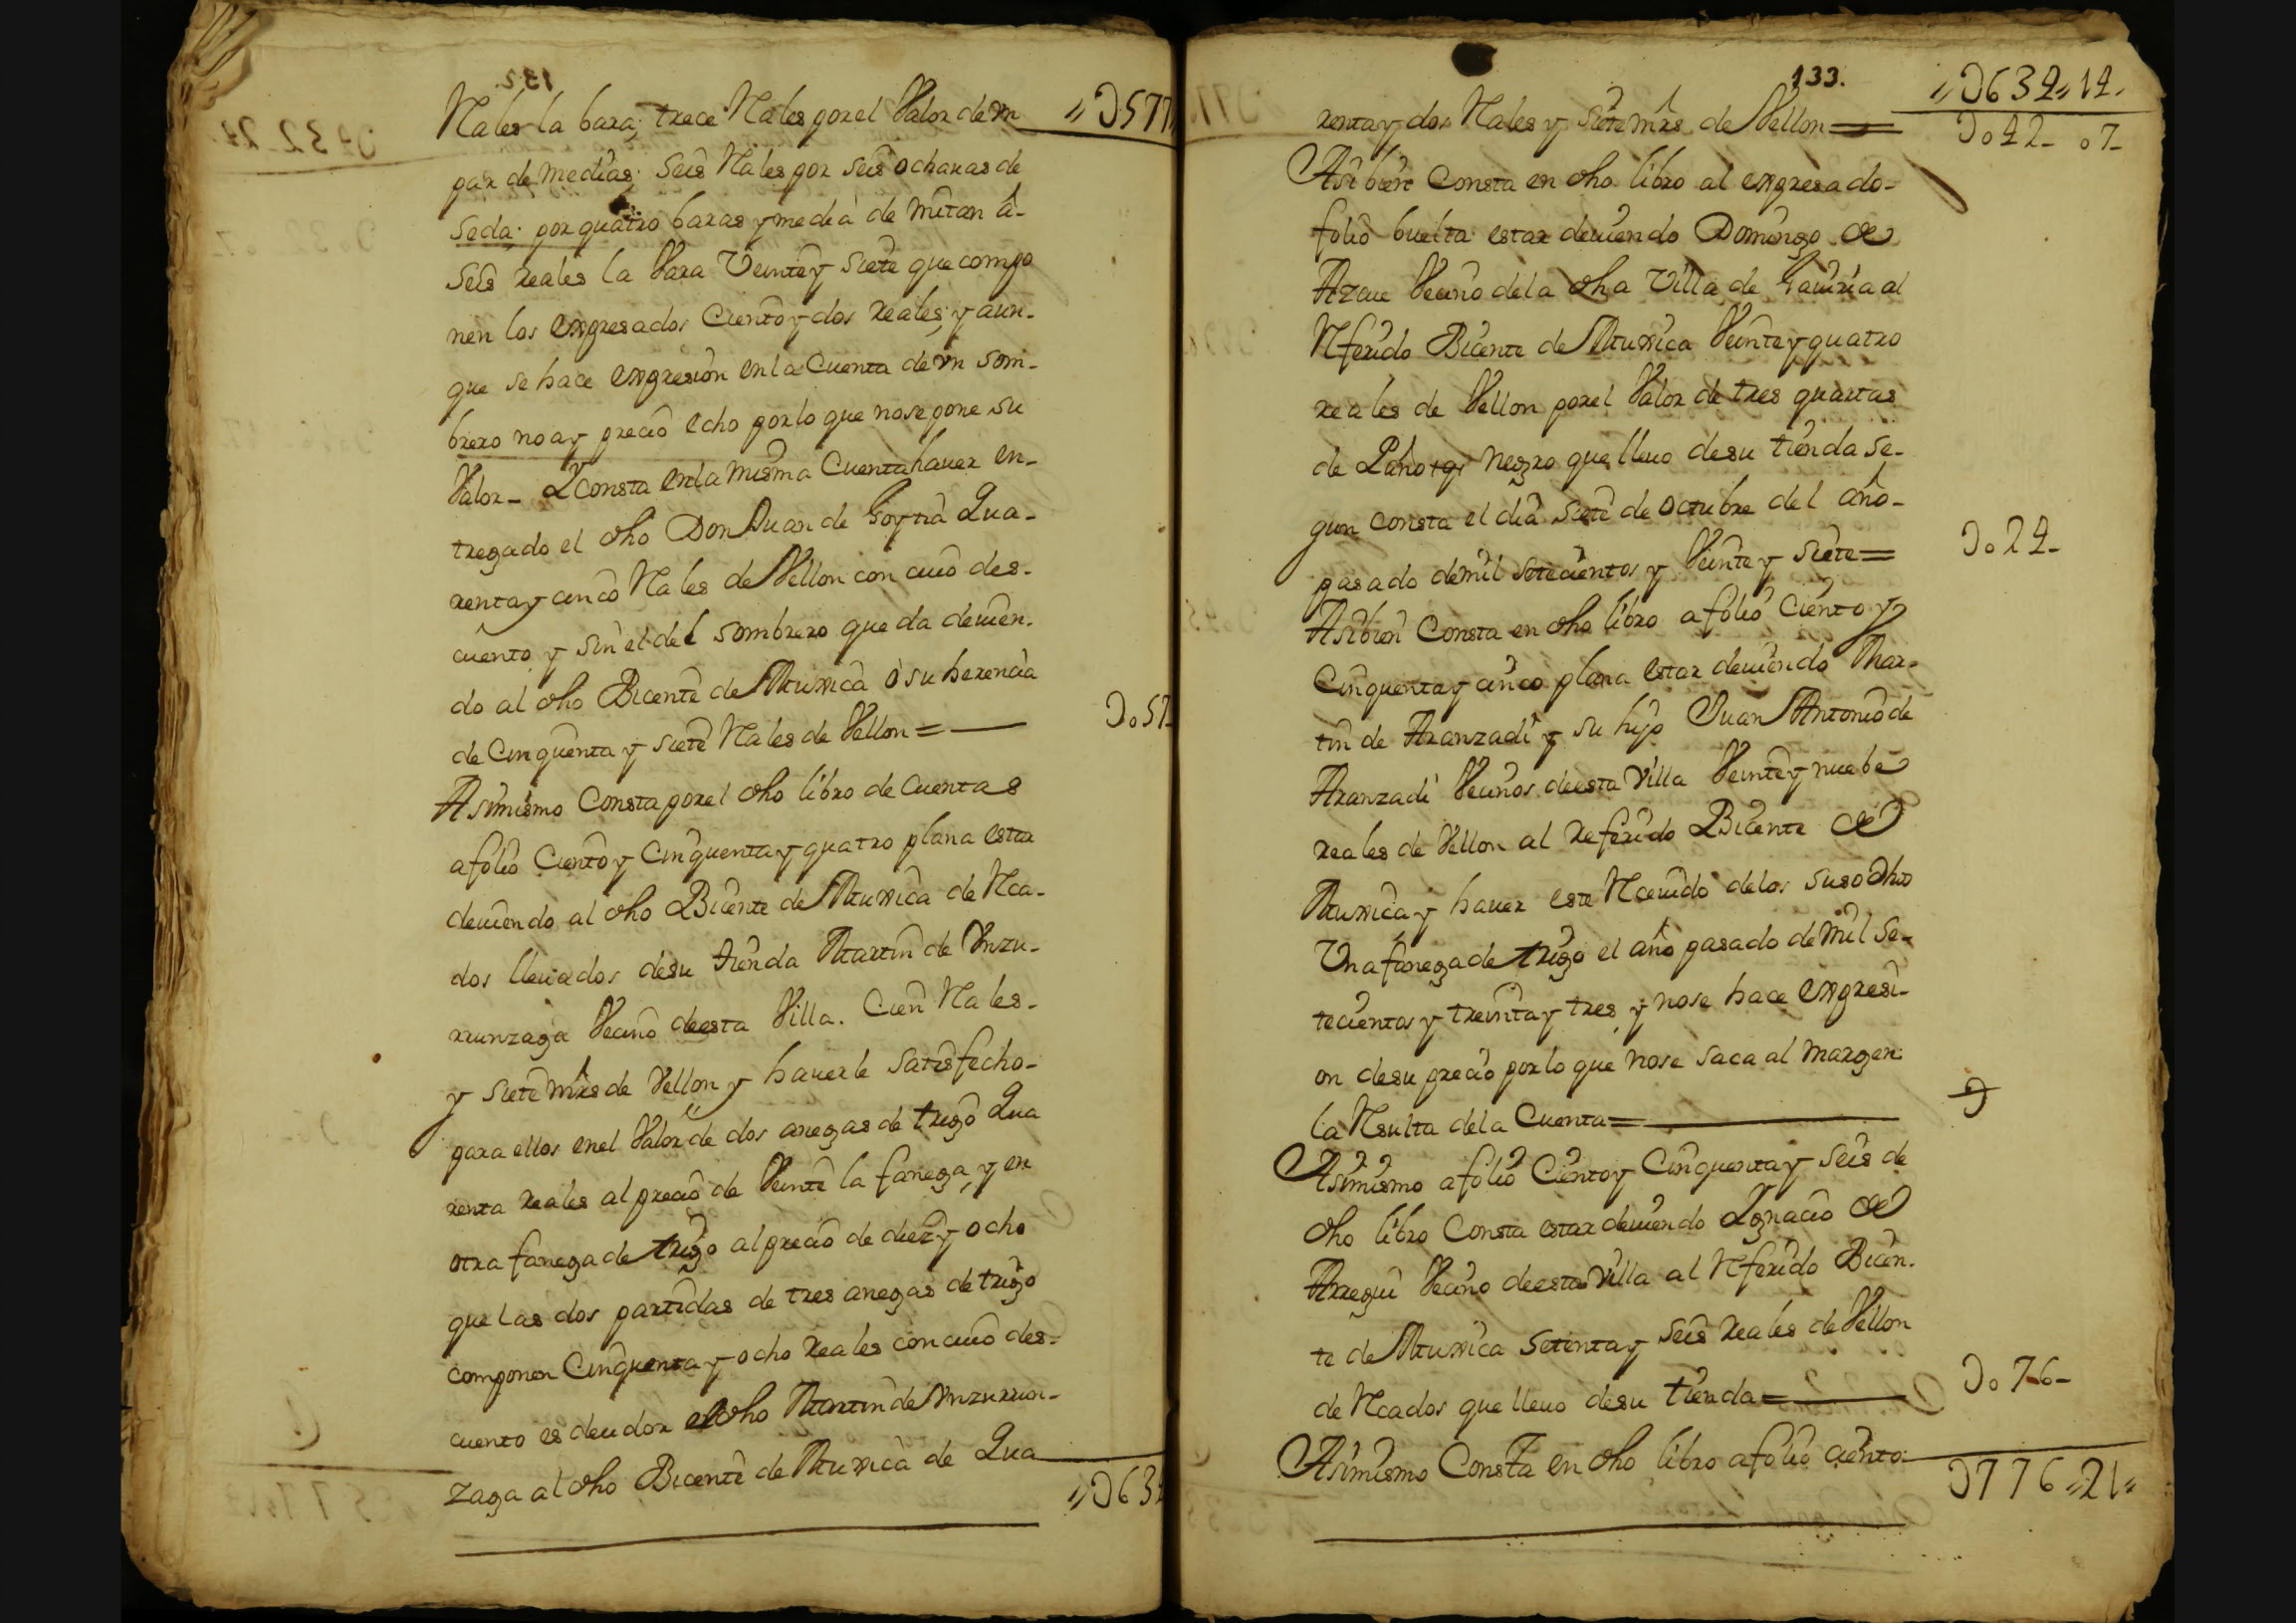 Rales la bara; trece Rales por el Valor de vn
par de medias; Seis Rales por Seis ochauas de
Seda; por quatro baras y media de mitan â
Seis reales la Vara Veinte y Siete que compo
nen los expresados Ciento y dos reales; y aun-
que se hace expresion en la Cuenta de vn som-
brero no ay precio echo por lo que nose pone su
Valor- Y Consta en la misma Cuenta hauer en-
tregado el dho Don Juan de Goytia Qua-
renta y cinco Rales de Vellon con cuio des-
cuento y sin el del Sombrero queda deuien-
do al dho Bicente de Muxica ò su herencia
de Cinquenta y siete Rales de Vellon =
Asimismo Consta por el dho libro de Cuentas
a folio Ciento y Cinquenta y quatro plana estar
deuiendo al dho Bicente de Muxica de Rca-
dos lleuados desu tienda Martin de Vnzu-
rrunzaga Vecino deesta Villa. Cien Rales-
y siete mrs de Vellon y hauerle Satisfecho-
para ellos enel Valor de dos anegas de trigo Qua
renta reales al precio de Veinte la fanega, y en
otra fanega de trigo al precio de diez y ocho
que las dos partidas de tres anegas de trigo
componen Cinquenta y ocho reales con cuio des-
cuento es deudor el dho Martin de Vnzurrun-
zaga al dho Bicente de Muxica de Qua
"D577
Do57
"D63
133.
"D634"14.
renta y dos Rales y Siete mrs de Vellon =
Do42- o7-
Asi bien Consta en dho libro al expresado-
folio buelta estar deuiendo Domingo de
Azcue Vecino dela dha Villa de Gauiria al
Rferido Bicente de Muxica Veinte y quatro
reales de Vellon por el Valor de tres quartas
de Paño Negro que lleuo desu tienda se-
gun consta el dia Siete de octubre del año-
pasado demil Setecientos y Veinte y Siete =
Do24-
Asibien Consta en dho libro a folio Ciento y
Cinquenta y cinco plana estar deuiendo Mar-
tin de Aranzadi y su hijo Juan Antonio de
Aranzadi Vecinos deesta Villa Veinte y nuebe
reales de Vellon al referido Bicente de
Muxica y hauer este Rceuido delos susodhos
Vna fanega de trigo el año pasado de mil se-
tecientos y treinta y tres, y nose hace expresi-
on desu precio por lo que nose saca al margen
la Rsulta dela Cuenta =
Asimismo a folio Ciento y Cinquenta y seis de
dho libro Consta estar deuiendo Ygnacio de
Arregui Vecino deesta Villa al Rferido Bicen-
te de Muxica Setenta y Seis reales de Vellon
de Rcados que lleuo desu tienda =
Do76-
Asimismo Consta en dho libro a folio ciento
D776"21"